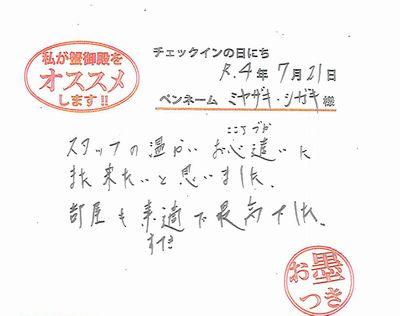 私が蟹御殿を
オススメ
します!!
チェックインの日にち
R.4年7月21日
ペンネーム ミヤザキ・シガキ様
こころづか
スタッフの温かいお心遣いに
また来たいと思いました。
部屋も素適で最高でした。
すてき
お墨
つき